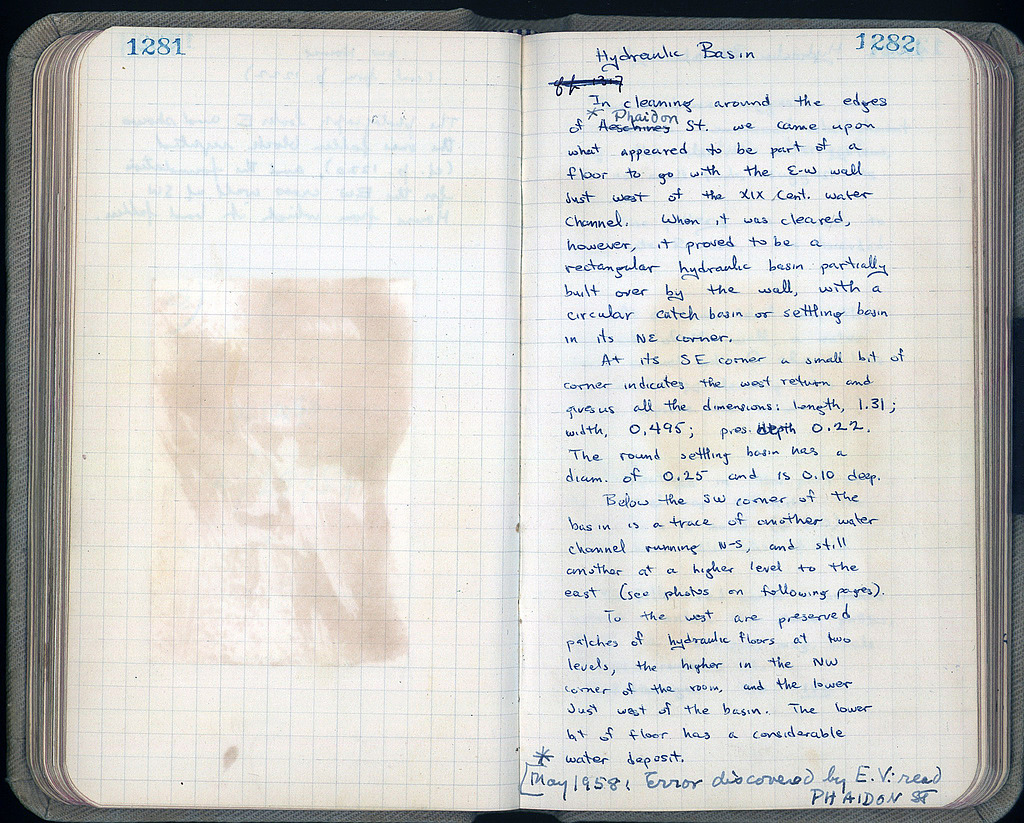 1281
1282
Hydraulic Basin
In cleaning around the edges
* Phaidon
of Aeschines St. we came upon
what appeared to be part of a
floor to go with the E-W wall
just west of the XIX Cent. water
channel. When it was cleared,
however, it proved to be a
rectangular hydraulic basin partially
built over by the wall, with a
circular catch basin or settling basin
in its NE corner.
At its SE corner a small bit of
corner indicates the west return and
gives us all the dimensions: length, 1.31;
width, 0.495; pres. depth 0.22.
The round settling basin has a
diam. of 0.25 and is 0.10 deep.
Below the SW corner of the
basin is a trace of another water
channel running N-S, and still
another at a higher level to the
east (see photos on following pages).
To the west are preserved
patches of hydraulic floors at two
levels, the higher in the NW
corner of the room, and the lower
just west of the basin. The lower
bit of floor has a considerable
* water deposit.
[May 1958: Error discovered by E.V.: read
PHAIDON ST